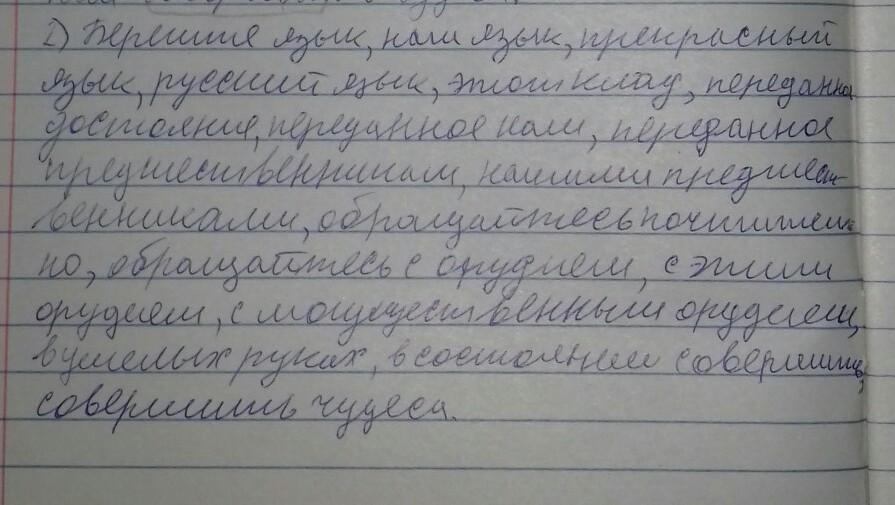 1) Берегите язык, наш язык, прекрасный
язык, русский язык, этот клад, переданное
достояние, переданное нам, переданное
предшественникам, нашими предшест-
венниками, обращайтесь почтитель-
но, обращайтесь с орудием, с этим
орудием, с могущественным орудием,
в умелых руках, в состоянии совершить,
совершить чудеса.